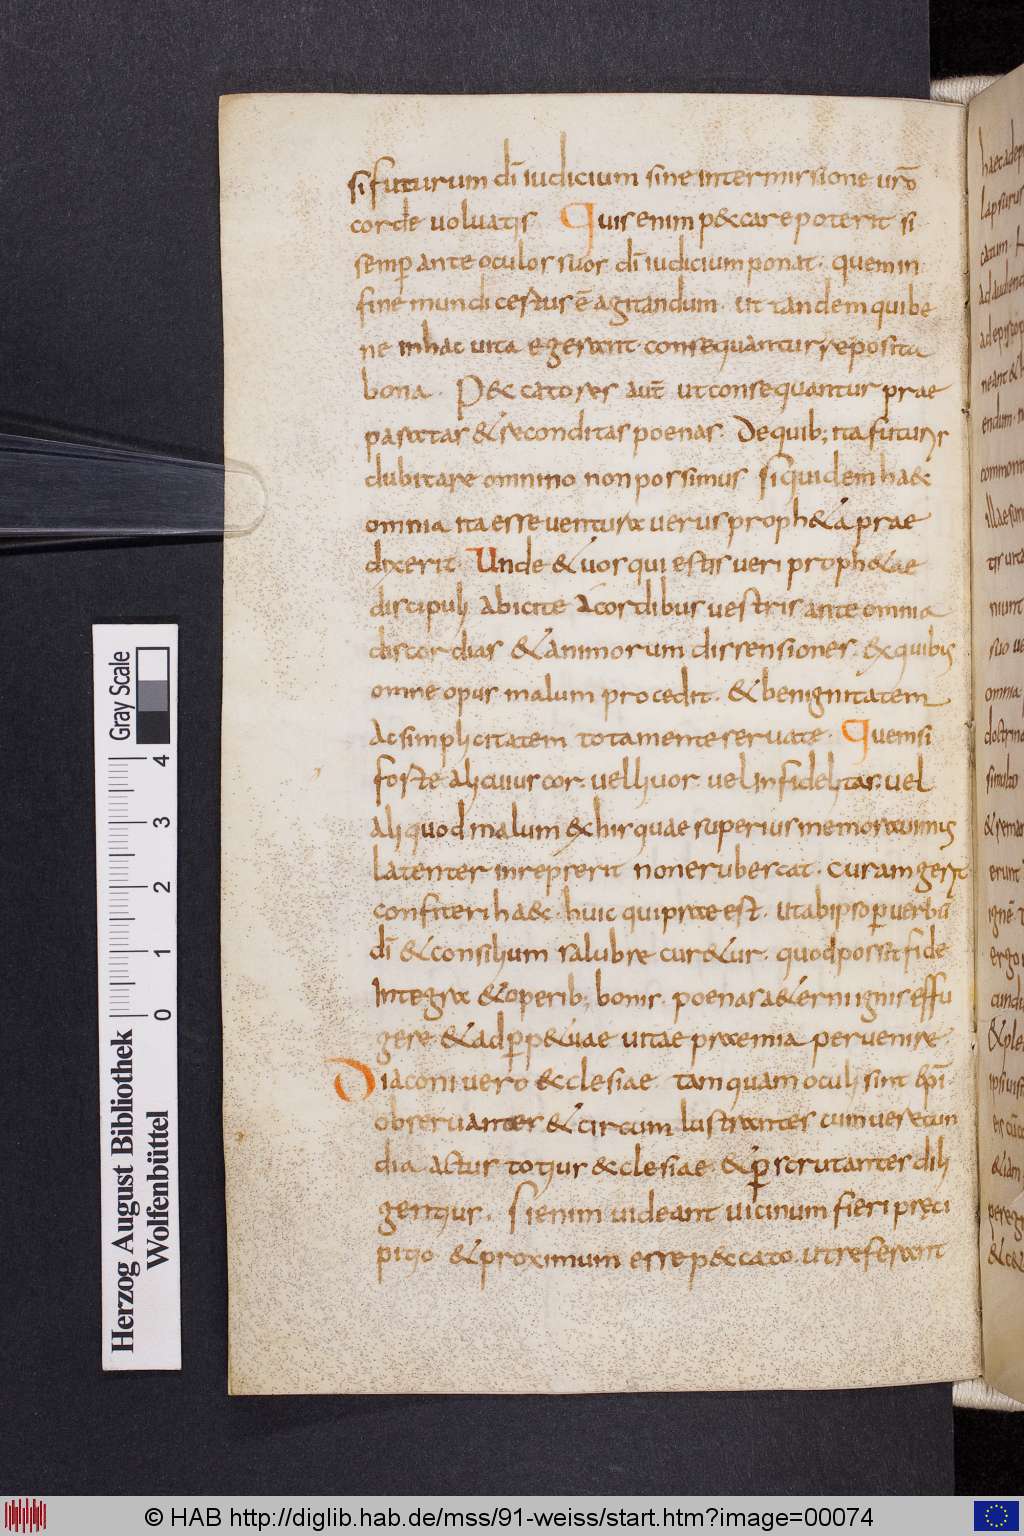 si futurum dī iudicium sine intermissione urō
corde uoluatis Quis enim p&care poterit si
semp ante oculos suos dī iudicium ponat. quem in
fine mundi certus ē agitandum. ut tandem qui be
ne in hac uita egerant consequantur reposita
bona. P&catores aut ut consequantur prae
paratas & reconditas poenas. De quib; ita futuris
dubitare omnino non possimus siquidem ha&c
omnia ita esse uentura uerus proph&a prae
dixerit. Unde & uos qui estis ueri proph&ae
discipuli abicite a cordibus uestris ante omnia
discordias & animorum dissensiones. ex quibus
omne opus malum procedit. & benignitatem
ac simplicitatem tota mente seruate. Quem si
forte alicuius cor. uel liuor. uel infidelitas. uel
aliquod malum ex his quae superius memorauimus
latenter inrepserit non erubescat. curam gerat
confiteri ha&c. huic qui prae est. ut ab ipso p uerbū
dī & consilium salubre cur&ur. quod possit fide
integra & operib; bonis. poenas a&erni ignis effu
gere & ad pp&uae uitae praemia peruenire.
Diaconi uero &cclesiae. tamquam oculi sint epī.
obseruanter & circum lustrantes cum uerecun
dia actus totius &cclesiae. & pscrutantes dili
gentius. Si enim uideant uicinum fieri preci
pitio & proximum esse p&ccato. ut referant
Gray Scale
0 1 2 3 4
Herzog August Bibliothek
Wolfenbüttel
© HAB http://diglib.hab.de/mss/91-weiss/start.htm?image=00074